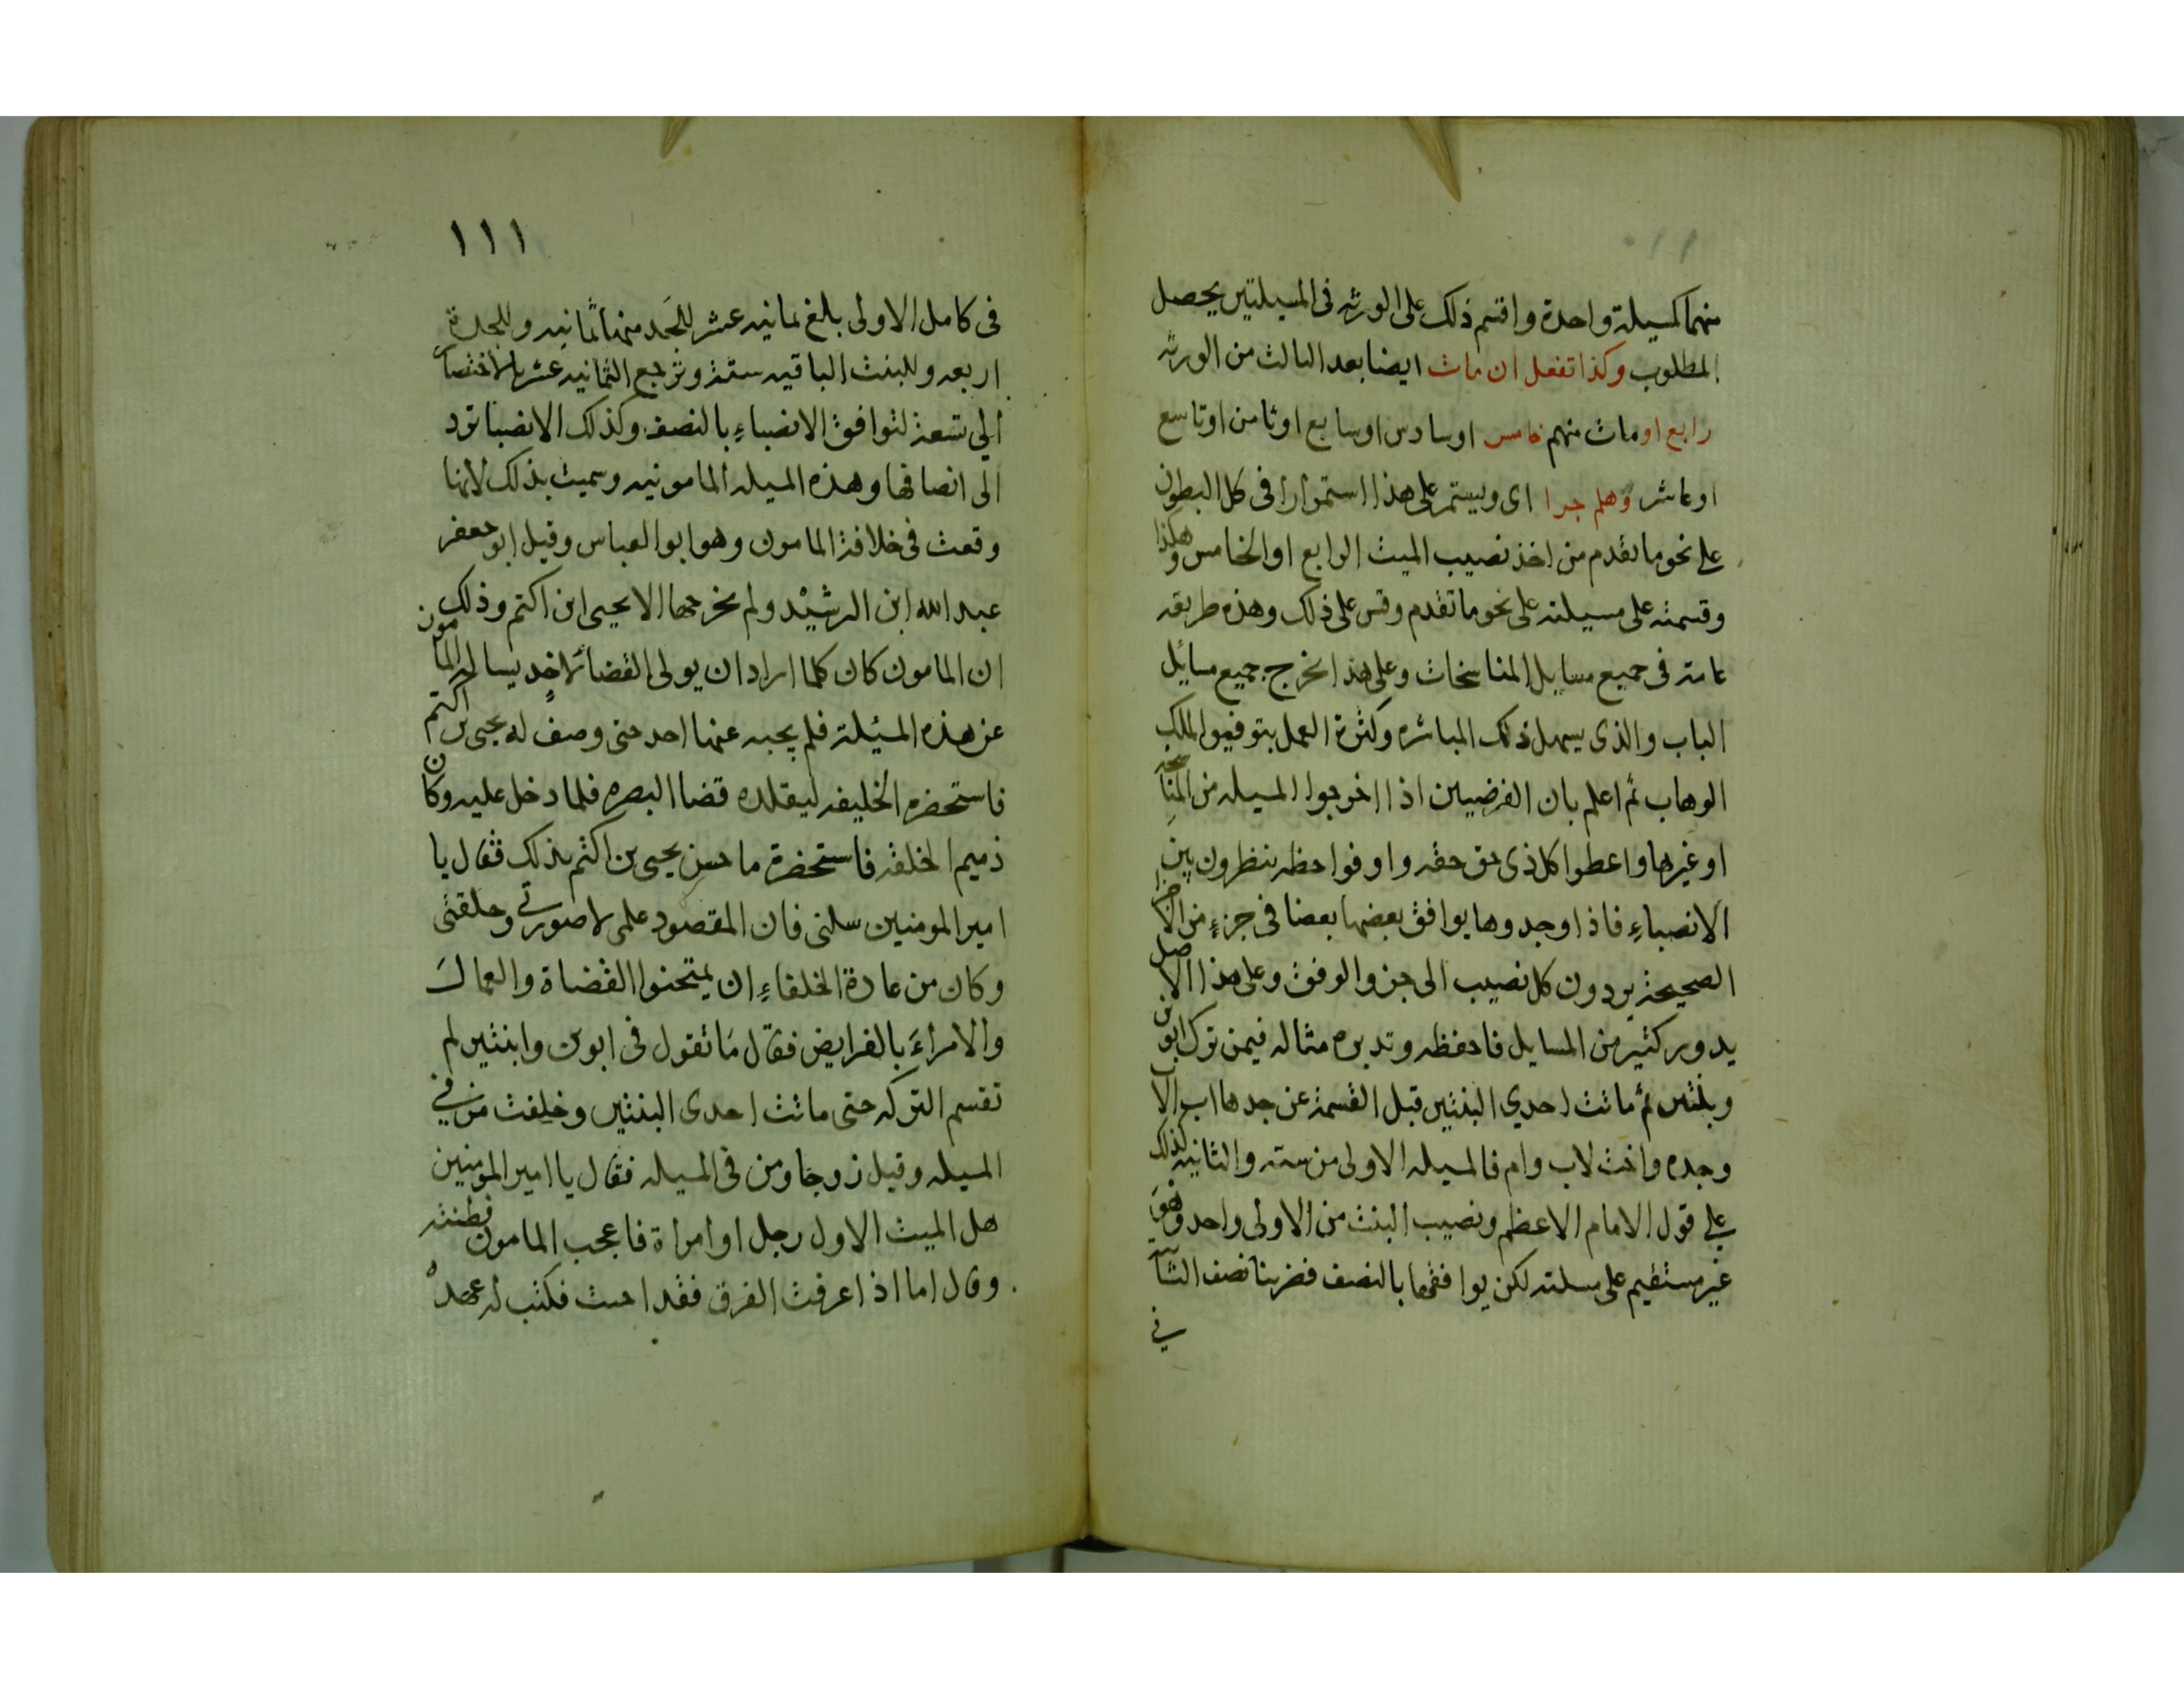 منهما كمسيلة واحدة واقسم ذلك على الورثه فى المسيلتين يحصل
المطلوب وكذا تفعل ان مات ايضا بعد الثالث من الورثه
رابع او مات منهم خامس اوسادس اوسابع اوثامن اوتاسع
اوعاشر وهلم جرا اى ويستمر على هذا استمرارا فى كل البطون
على نحو ما تقدم من اخذ نصيب الميت الرابع او الخامس وهكذا
وقسمته على مسيلته على نحو ما تقدم وقس على ذلك وهذه طريقه
عامة فى جميع مسايل المناسخات وعلى هذا تخرج جميع مسائل
الباب والذى يسهل ذلك المباشره وكثرة العمل بتوفيق الملك
الوهاب ثم اعلم بان الفرضيين اذا اخرجوا المسيله من المناسخة
اوغيرها واعطوا كل ذى حق حقه واوفوا حظه ينظرون بين
الانصباءِ فاذا وجدوها يوافق بعضها بعضا فى جزءٍ من الاجزا
الصحيحة يردون كل نصيب الى جزو الوفق وعلى هذا الاصل
يدور كثير من المسايل فاحفظه وتدبره مثاله فيمن ترك ابوين
وبنتين ثم ماتت احدي البنتين قبل القسمة عن جدها اب الاب
وجده واخت لاب وام فالمسيله الاولى من سته والثانيه كذلك
على قول الامام الاعظم ونصيب البنت من الاولى واحد وهو
غير مستقيم على مسلته لكن يوافقها بالنصف فضربنا نصف الثانيه
فى
١١١
فى كامل الاولى بلغ ثمانيه عشر للجد منها ثمانيه وللجدة
اربعه وللبنت الباقيه ستة وترجع الثمانيه عشر بالاختصار
الي تسعة لتوافق الانصباءِ بالنصف وكذلك الانصبا ترد
الى انصافها وهذه المسيله المامونيه وسميت بذلك لانها
وقعت فى خلافة المامون وهو ابو العباس وقيل ابو جعفر
عبد الله ابن الرشيد ولم يخرجها الا يحيى ابن اكتم وذلك
ان المامون كان كلما اراد ان يولى القضا لاحد يساله المامون
عن هذه المسئلة فلم يجبه عنها احد حتى وصف له يحيى بن اكتم
فاستحضره الخليفه ليقلده قضا البصره فلما دخل عليه وكان
ذميم الخلقه فاستحضرة ما حسن يحيى بن اكثم بذلك فقال يا
امير المومنين سلنى فان المقصود علمى لا صورتي وخلقتى
وكان من عادة الخلفاءِ ان يمتحنوا القضاة والعمال
والامراءَ بالفرايض فقال ما تقول فى ابوين وابنتين لم
تقسم التركه حتى ماتت احدى البنتين وخلفت من في
المسيله وقيل زوجا ومن فى المسيله فقال يا امير المومنين
هل الميت الاول رجل او امراة فاعجب المامون فطنته
وقال اما اذا عرفت الفرق فقد احبت فكتب له عهده